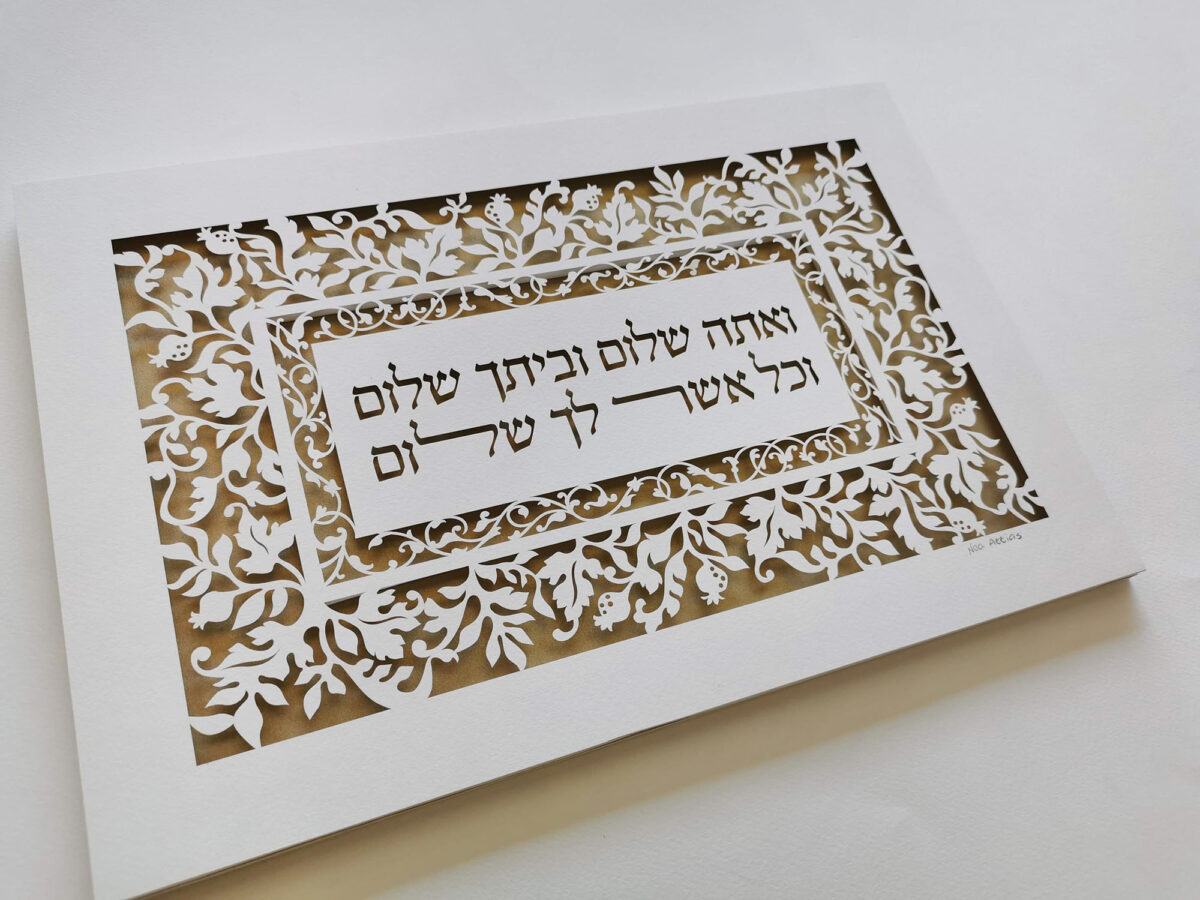 ואתה שלום וביתך שלום
וכל אשר לך שלום
Noa Attias